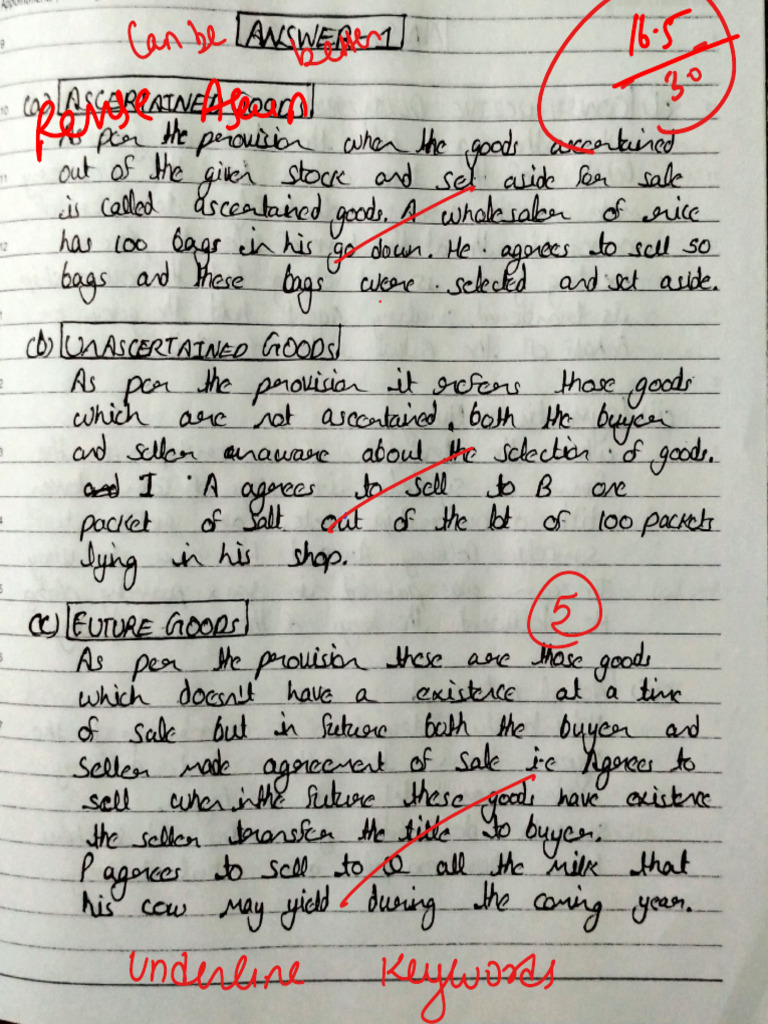 Can be better
ANSWER-1
16.5
30
(a) ASCERTAINED GOODS
Revise Again
As per the provision when the goods ascertained
out of the given stock and set aside for sale
is called ascertained goods. A wholesaler of rice
has 100 bags in his go down. He agrees to sell 50
bags and these bags were selected and set aside.
(b) UNASCERTAINED GOODS
As per the provision it refers those goods
which are not ascertained, both the buyer
and seller unaware about the selection of goods.
A agrees to sell to B one
packet of salt out of the lot of 100 packets
lying in his shop.
5
(c) FUTURE GOODS
As per the provision these are those goods
which doesn't have a existence at a time
of sale but in future both the buyer and
seller made agreement of sale i.e Agrees to
sell when in the future these goods have existence
the seller transfer the title to buyer.
P agrees to sell to Q all the milk that
his cow may yield during the coming year.
Underline Keywords